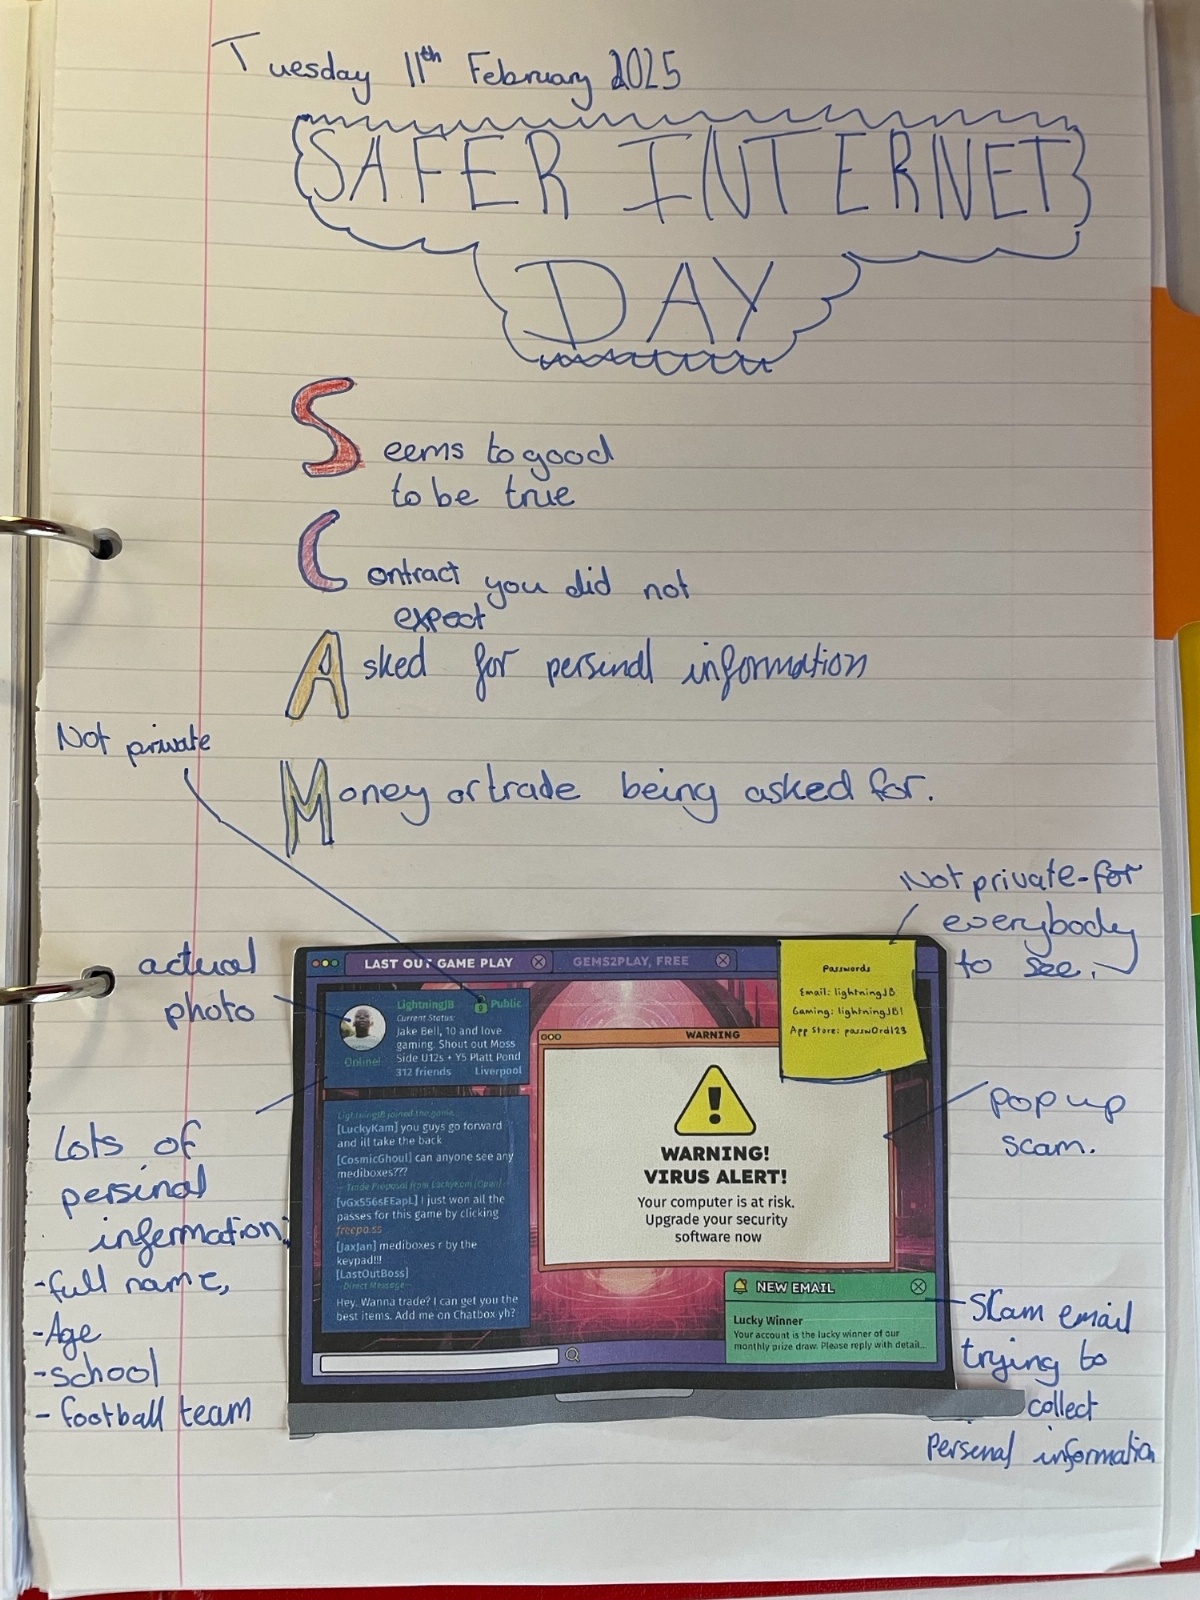 Tuesday 11th February 2025
SAFER INTERNET
DAY
Seems to good
to be true
Contract you did not
expect
Asked for persinal information
Not private
Money or trade being asked for.
Not private-for
everybody
to see.
actual
photo
LAST OUT GAME PLAY
GEMS2PLAY, FREE
Passwords
Email: lightningJB
Gaming: lightningJB1
App Store: passw0rd123
LightningJB
Public
Current Status:
Jake Bell, 10 and love
gaming. Shout out Moss
Side U12s + Y5 Platt Pond
312 friends Liverpool
Online!
WARNING
WARNING!
VIRUS ALERT!
Your computer is at risk.
Upgrade your security
software now
pop up
scam.
LightningJB joined the game...
[LuckyKam] you guys go forward
and ill take the back
[CosmicGhoul] can anyone see any
mediboxes???
--Trade Proposal from LuckyKam [Open]--
[vGx556sEEapL] I just won all the
passes for this game by clicking
freepa.ss
[JaxJan] mediboxes r by the
keypad!!!
[LastOutBoss]
--Direct Message--
Hey. Wanna trade? I can get you the
best items. Add me on Chatbox yh?
Lots of
persinal
infermation:
-full name,
-Age
-school
- football team
NEW EMAIL
Lucky Winner
Your account is the lucky winner of our
monthly prize draw. Please reply with detail...
Scam email
trying to
collect
Personal information